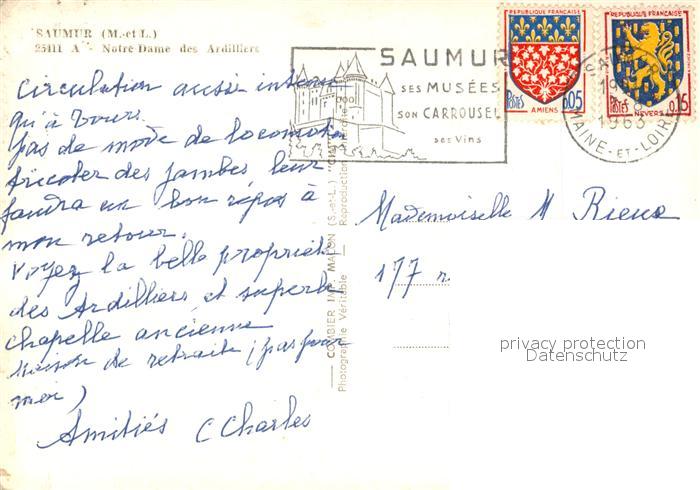 SAUMUR (M.-et L.)
25411 A Notre-Dame des Ardilliers
Circulation aussi intense
qu'à Tours.
pas de mode de locomotion
tricoter des jambes leur
faudra un bon répos à
mon retour.
Voyez la belle propriété
des Ardilliers et superbe
chapelle ancienne
maison de retraite (pas pour
moi)
Amitiés C Charles
COMBIER IMP. MACON (S.-et-L.)
Photographie Véritable
Reproduction
SAUMUR
SES MUSÉES
SON CARROUSEL
SES VINS
REPUBLIQUE FRANÇAISE
POSTES
0,05
AMIENS
REPUBLIQUE FRANÇAISE
POSTES
0,15
NEVERS
1963
MAINE-ET-LOIRE
Mademoiselle M Rieux
177 r
privacy protection
Datenschutz